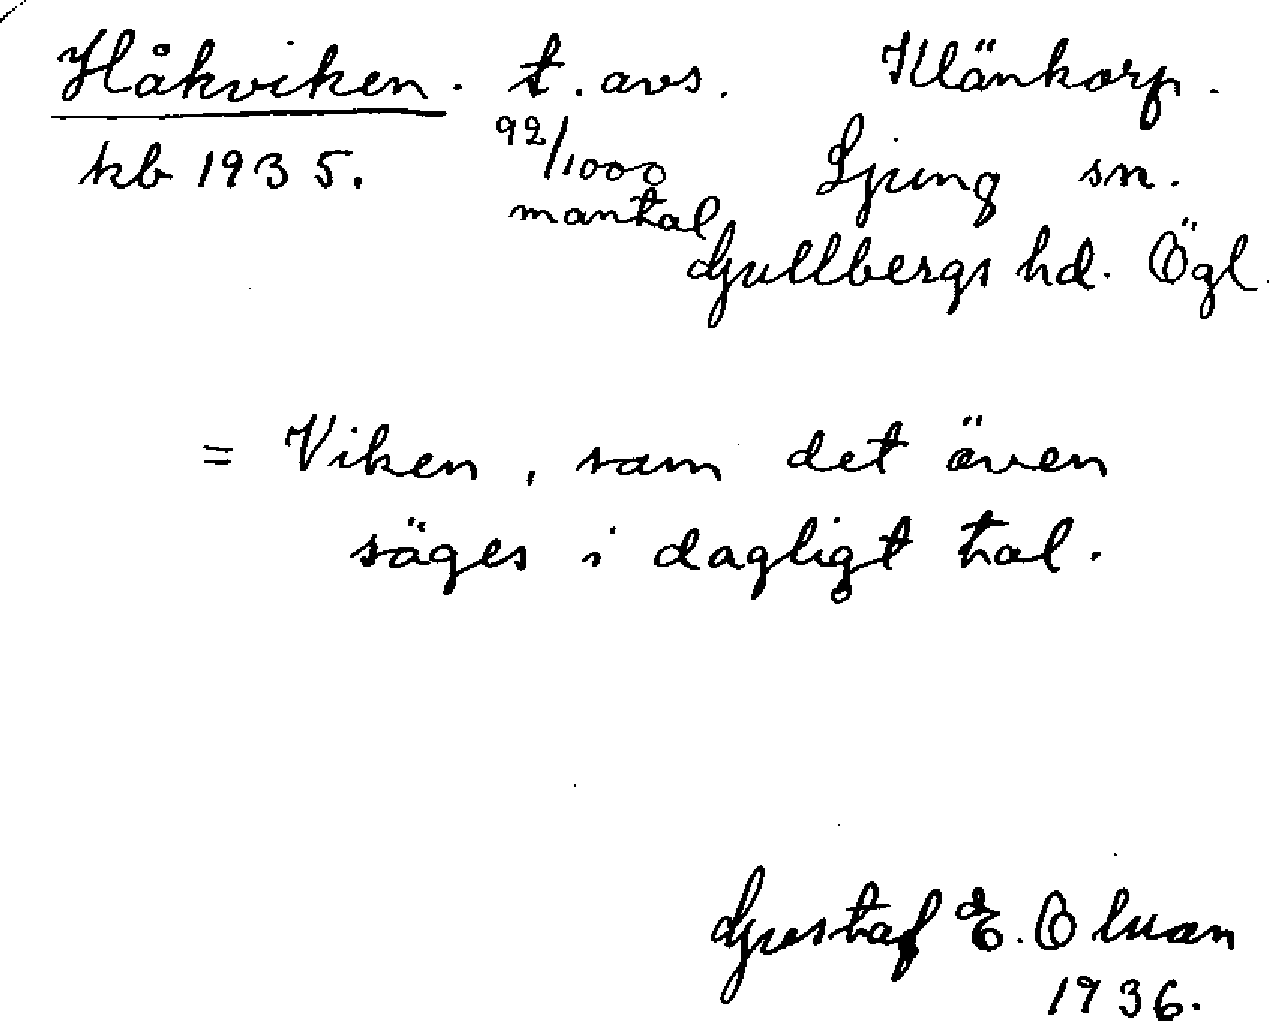 Håkviken. t. avs. Klänkorp.
kb 1935. 92/1000 Ljung sn.
mantal
Gullbergs hd. Ögl.
= Viken, som det även
säges i dagligt tal.
Gustaf E.
1936.